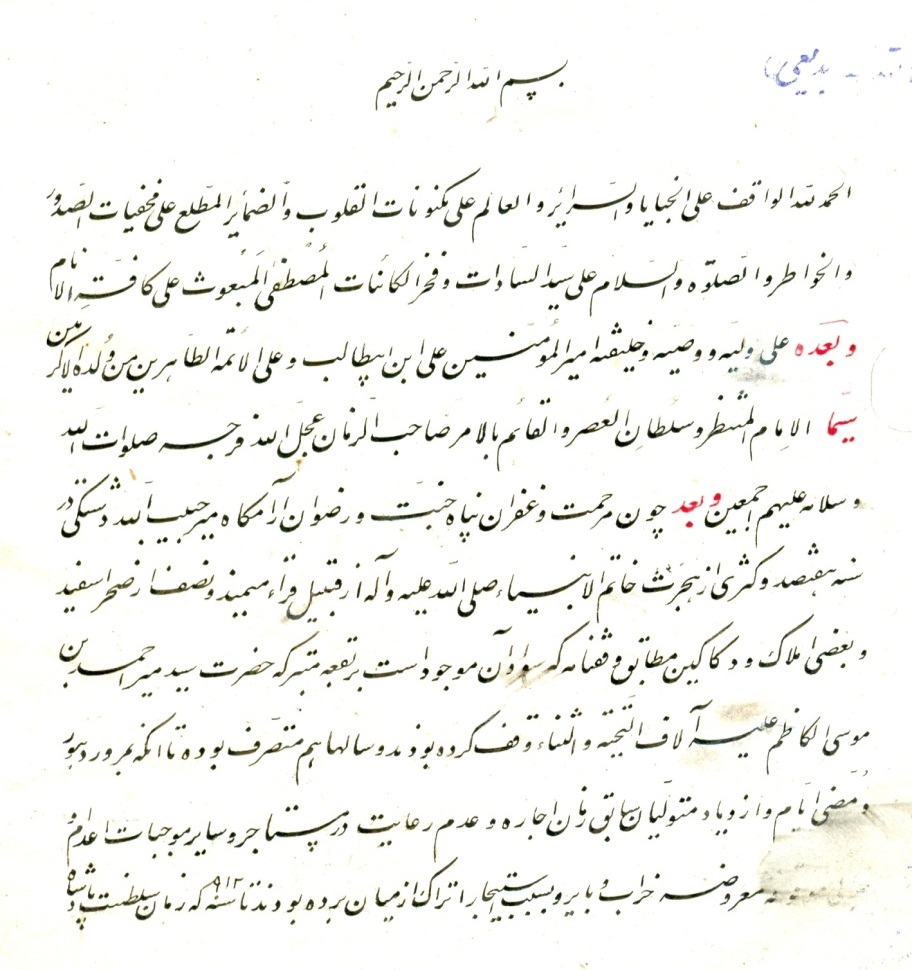 بدیعی)
بسم الله الرحمن الرحیم
الحمد لله الواقف علی الخبایا والسرائر و العالم علی مکنونات القلوب والضمائر المطلع علی مخفیات الصدور
والخواطر و الصلوه والسلام علی سید السادات و فخر الکائنات المصطفی المبعوث علی کافة الانام
و بعده علی ولیه و وصیه و خلیفته امیر المؤمنین علی ابن ابیطالب و علی الائمة الطاهرین من ولده الاکرمین
سیما الامام المنتظر و سلطان العصر و القائم بالامر صاحب الزمان عجل الله فرجه صلوات الله
و سلامه علیهم اجمعین و بعد چون مرحمت و غفران پناه جنت و رضوان آرامگاه میر حبیب الله دشتکی در
سنه هفتصد و کثری از هجرت خاتم الانبیاء صلی الله علیه وآله از قبیل قراء میمند و نصف از ضحر اسفید
و بعضی املاک و دکاکین مطابق وقفنامه که سواد آن موجود است بر بقعه متبرکه حضرت سید میر احمد بن
موسی الکاظم علیه آلاف التحیة و الثناء وقف کرده بودند و سالها هم متصرف بوده تا آنکه بمرور دهور
و مضی ایام و ازدیاد متولیان سابق زمان اجاره و عدم رعایت در مستاجر و سایر موجبات اعدام و
معروضه خراب و بایر و بسبب استیجار اتراک از میان برده بودند تا سنه ۹۱۲ که زمان سلطنت پادشاه